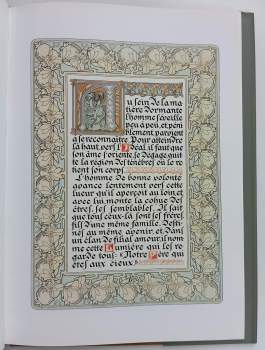 Au sein de la ma
tière dormante
l'homme s'éveille
peu à peu, et péni
blement, parvient
à se reconnaître. Pour atteindre
là haut, vers l'Idéal, il faut que
son âme s'oriente, se dégage, quit
te la région des ténèbres où le re
tient son corps.
L'homme de bonne volonté
avance lentement vers cette
lueur qu'il aperçoit au loin, et
avec lui monte la cohue des
êtres, ses semblables. Il sait
que tous ceux-là sont ses frères
fils d'une même famille, desti
nés au même avenir, et, dans
un élan de filial amour, il nom
me cette Lumière qui les re
garde tous: "Notre Père qui
êtes aux cieux"